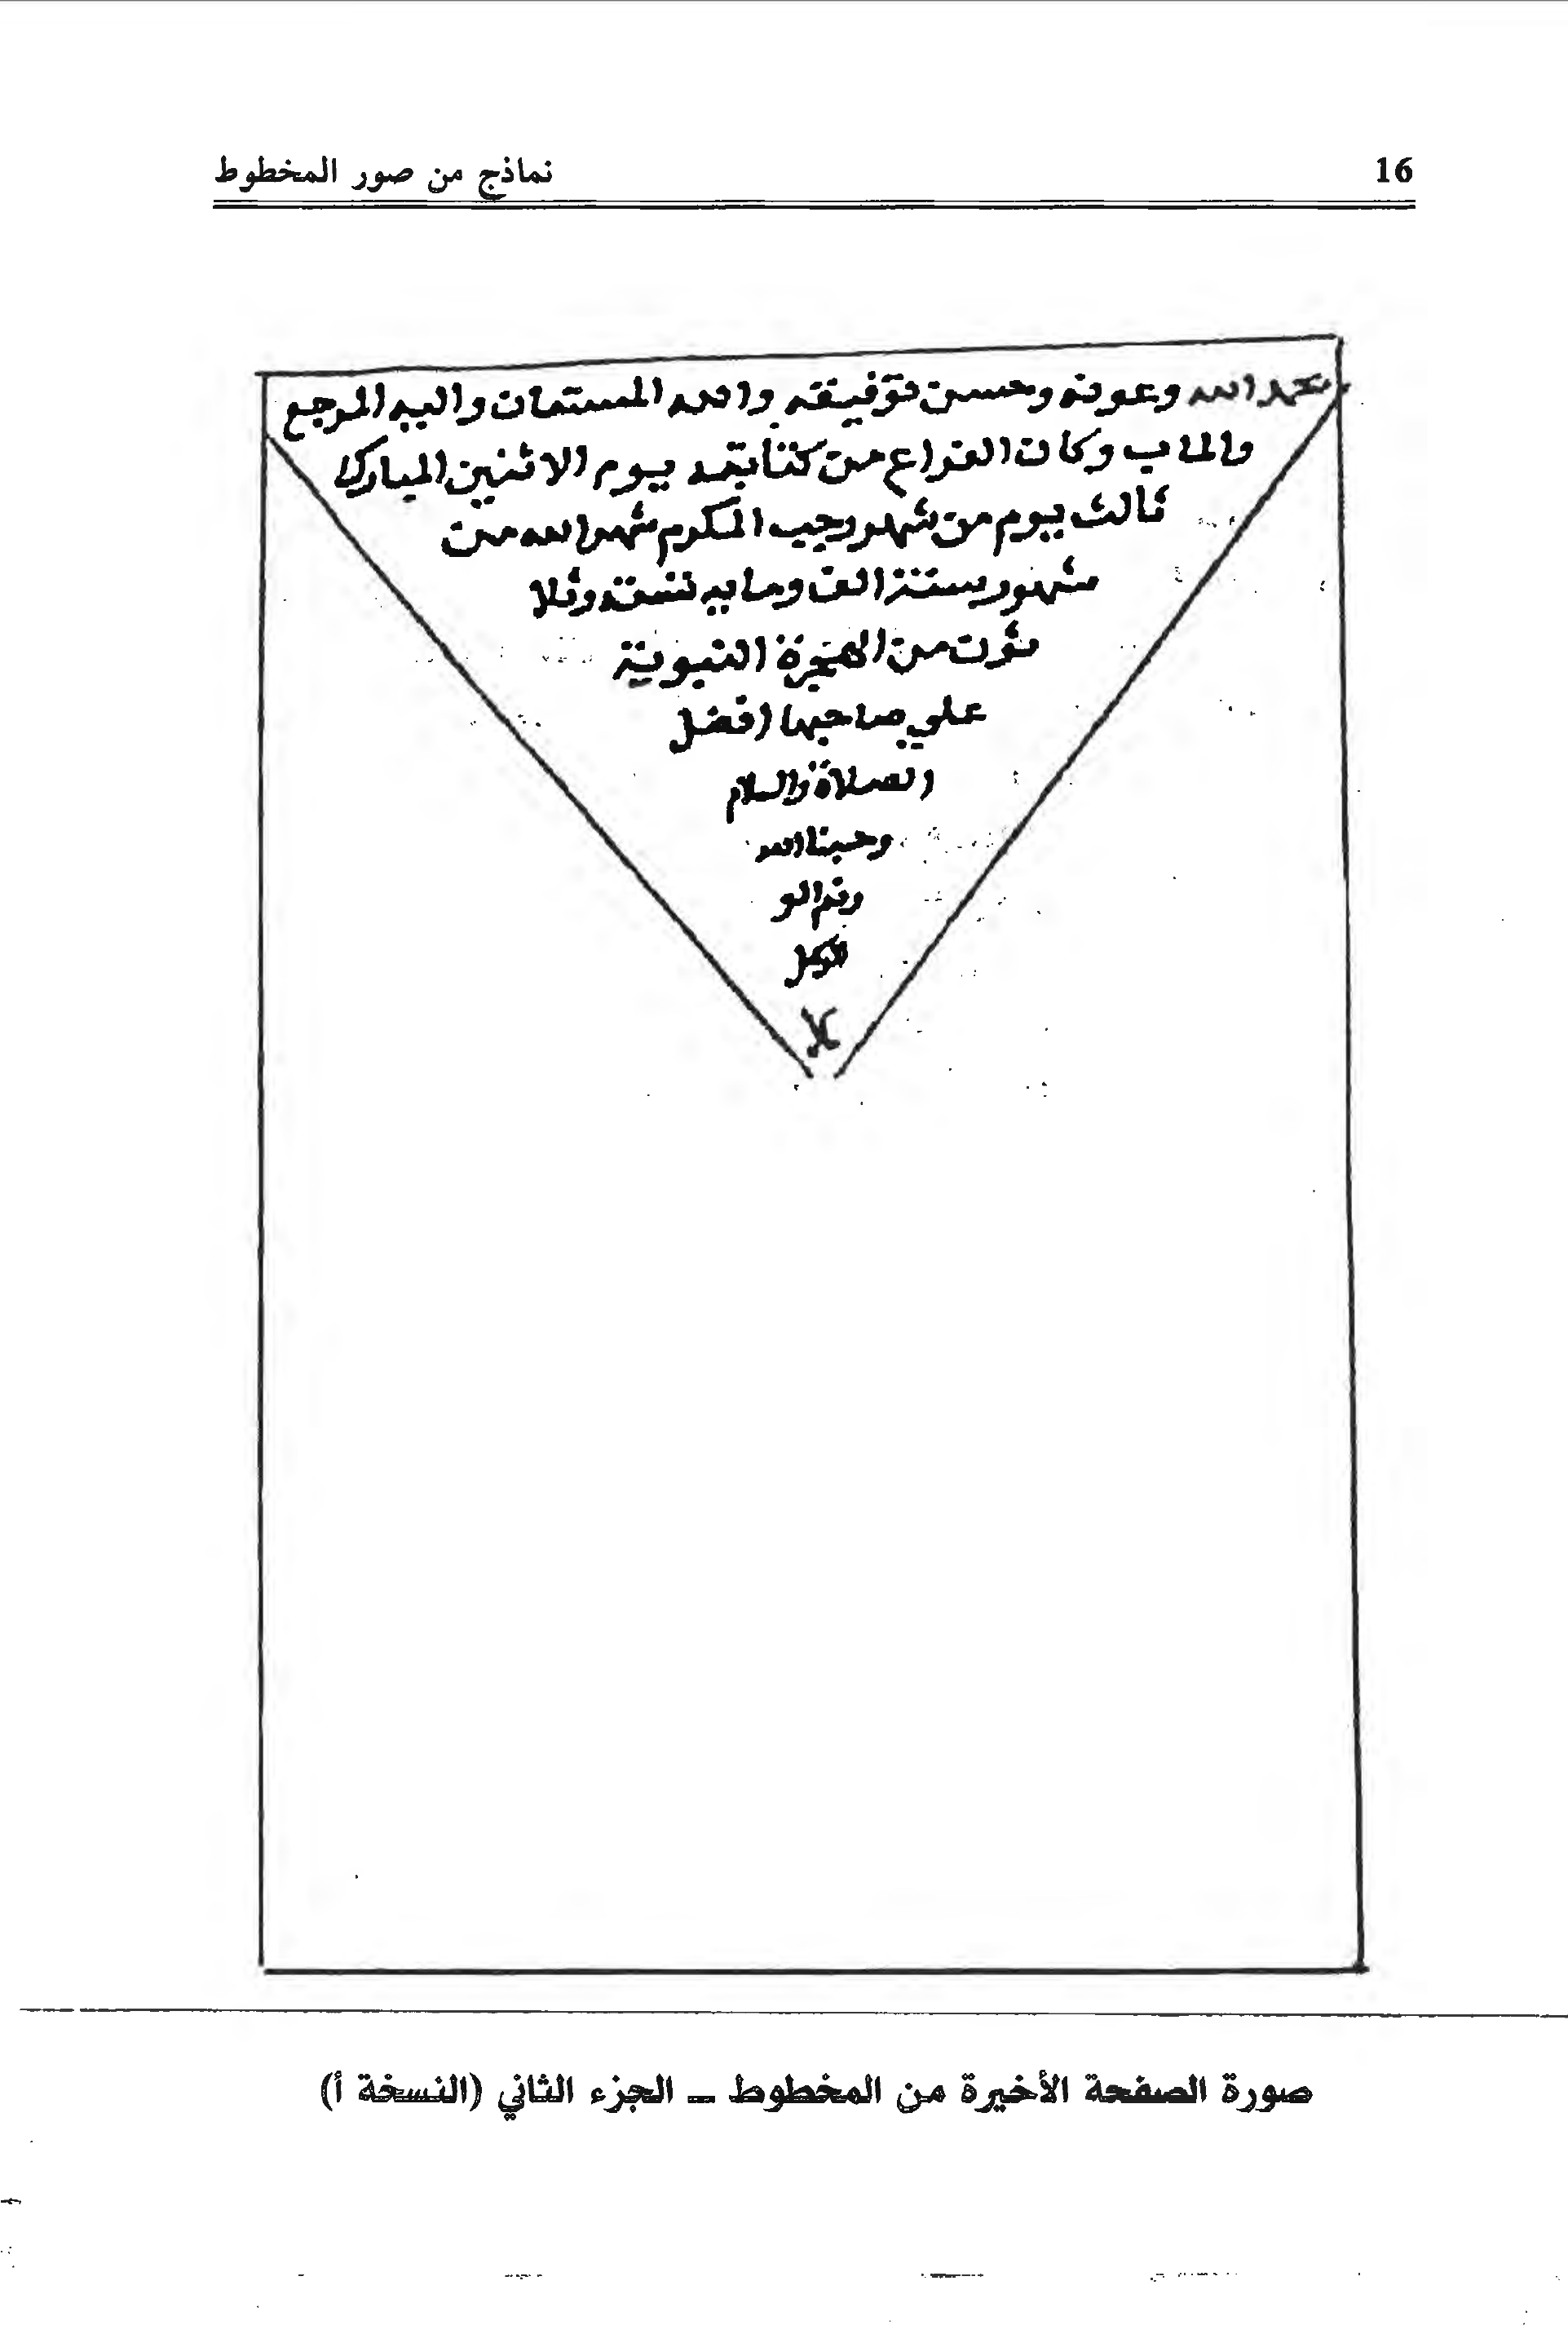 16
نماذج من صور المخطوط
بحمد الله وعونه وحسن توفيقه والله المستعان واليه المرجع
والماب وكان الفراغ من كتابته يوم الاثنين المبارك
ثالث يوم من شهر رجب المكرم شهر الله من
شهور سنة الف ومايه وثلا
ثون من الهجرة النبوية
علي صاحبها افضل
الصلاة والسلام
وحسبنا الله
ونعم الو
الوكيل
صورة الصفحة الأخيرة من المخطوط ــ الجزء الثاني (النسخة أ)